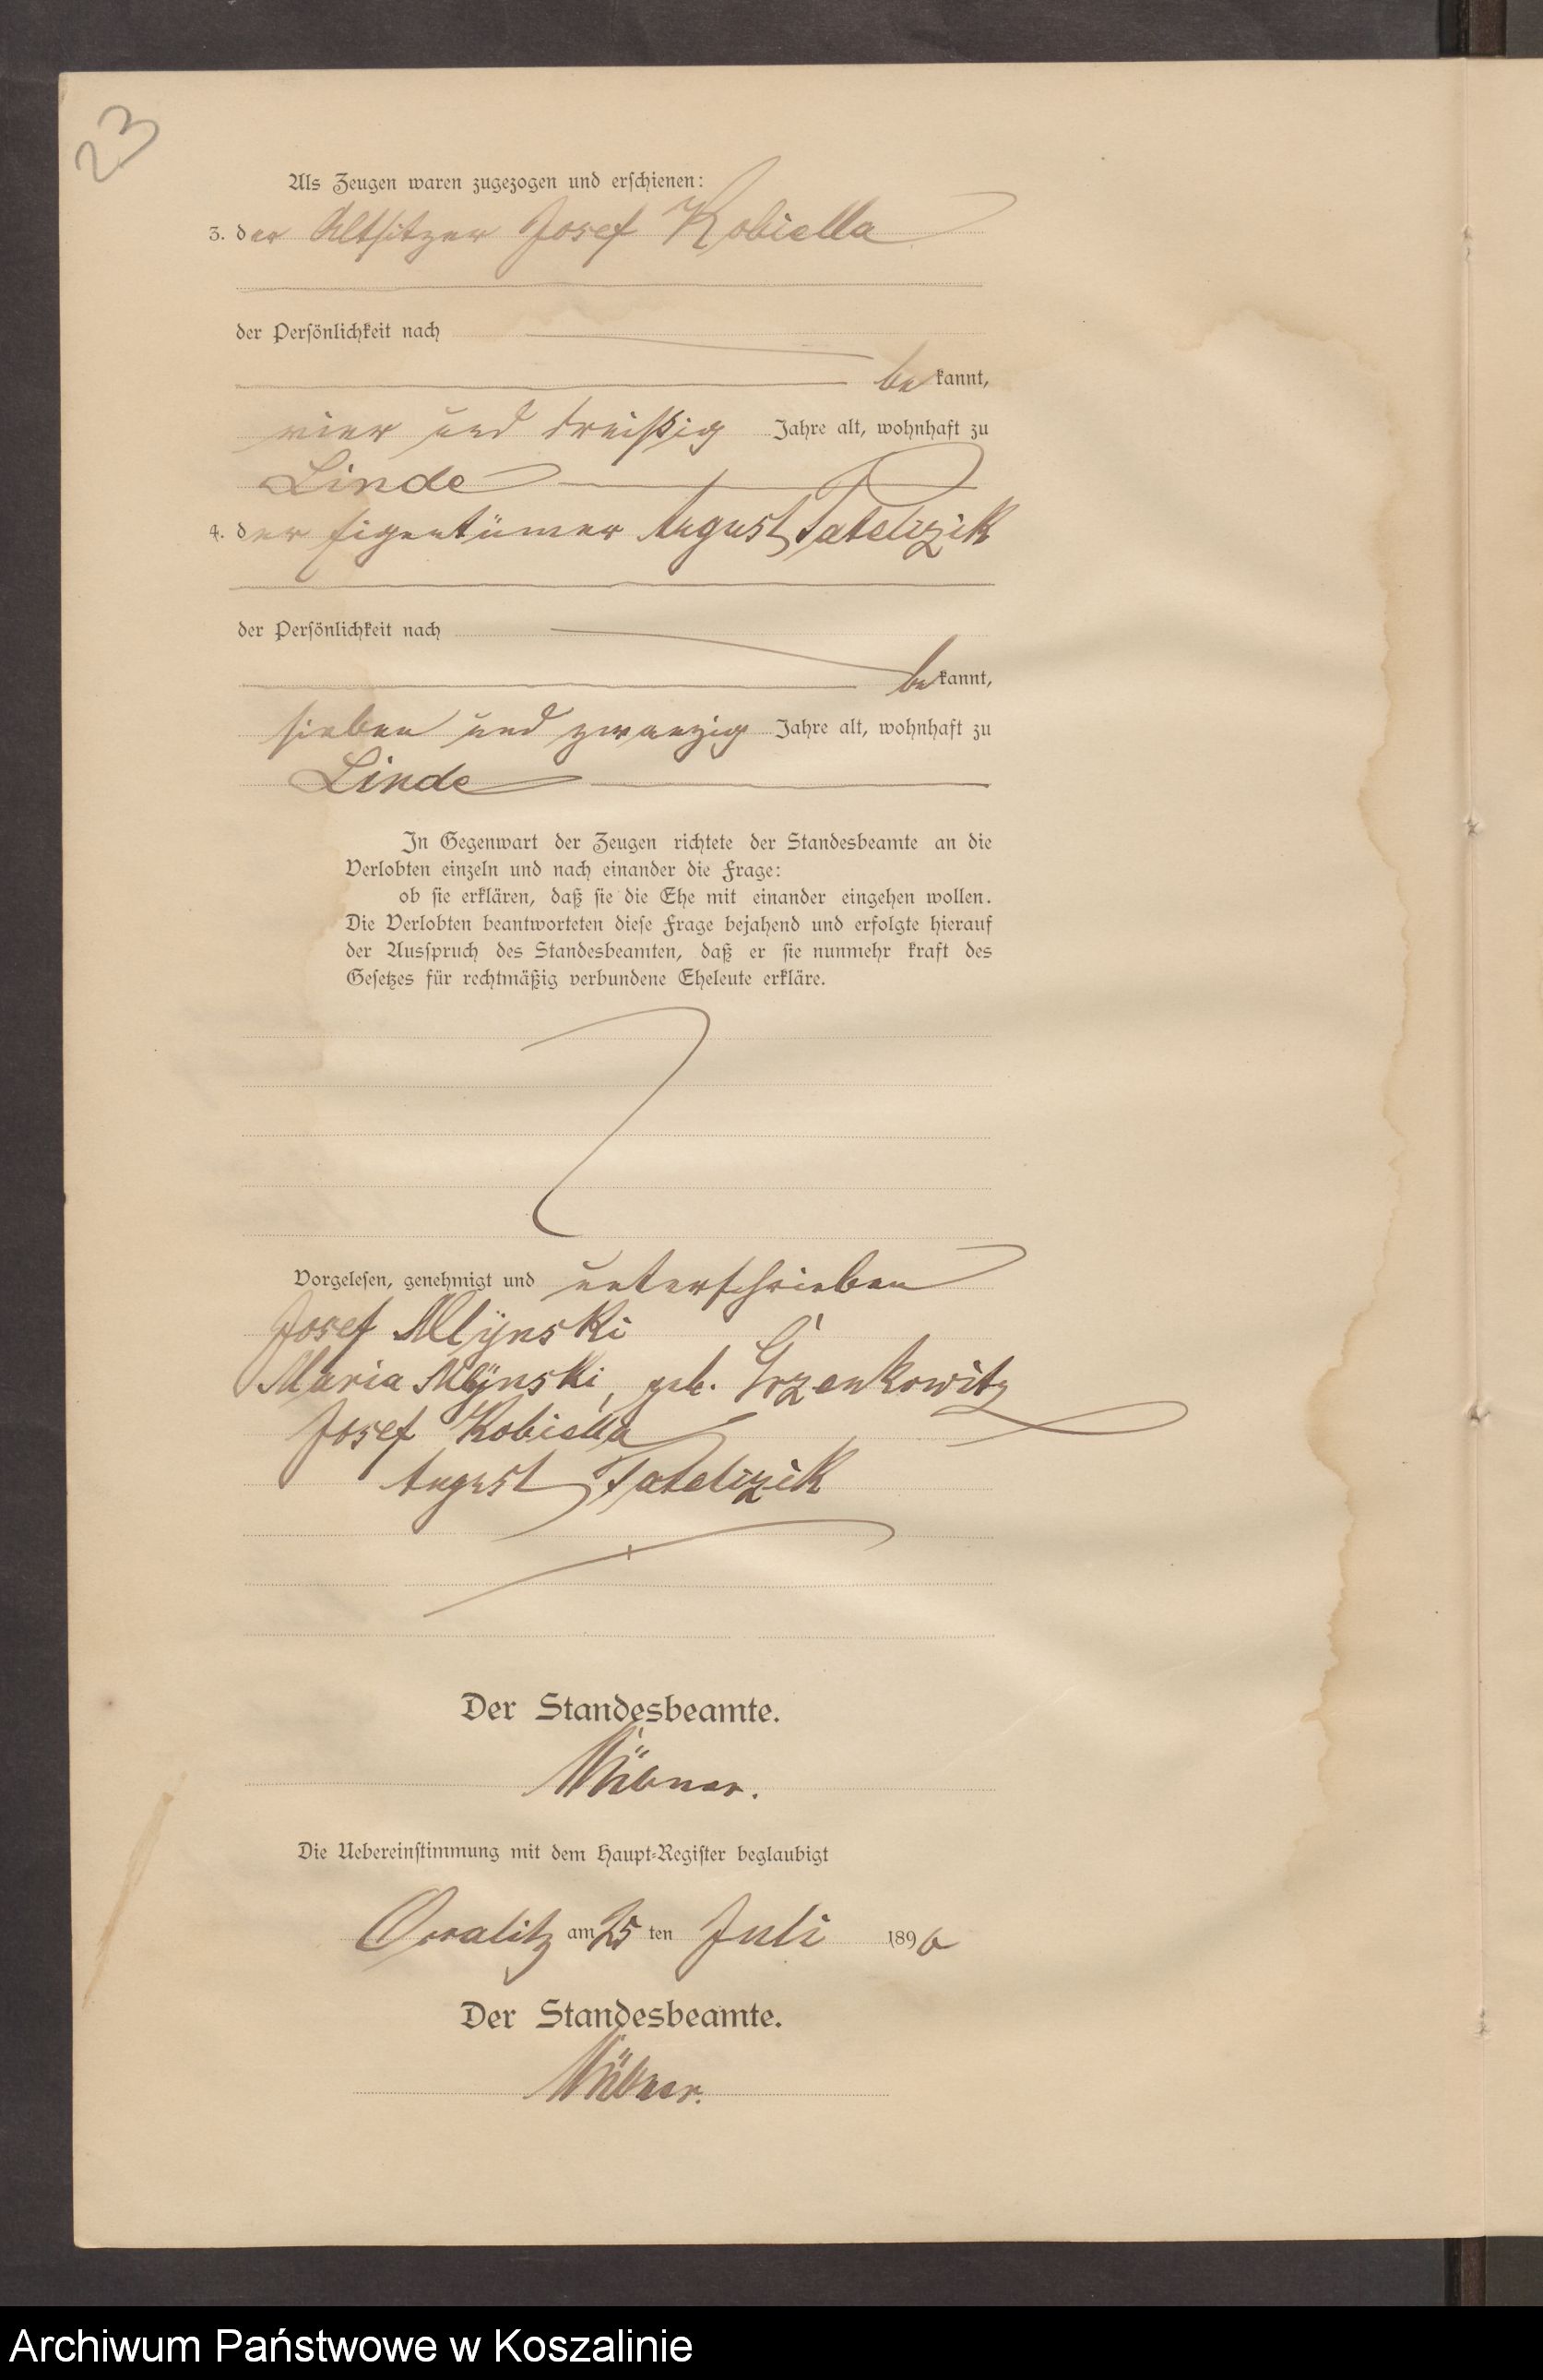 23
Als Zeugen waren zugezogen und erschienen:
3. der Altsitzer Josef Kobiella
der Persönlichkeit nach
bekannt,
vier und dreißig Jahre alt, wohnhaft zu
Linde
4. der Eigentümer August
der Persönlichkeit nach
bekannt,
sieben und zwanzig Jahre alt, wohnhaft zu
Linde
In Gegenwart der Zeugen richtete der Standesbeamte an die
Verlobten einzeln und nach einander die Frage:
ob sie erklären, daß sie die Ehe mit einander eingehen wollen.
Die Verlobten beantworteten diese Frage bejahend und erfolgte hierauf
der Ausspruch des Standesbeamten, daß er sie nunmehr kraft des
Gesetzes für rechtmäßig verbundene Eheleute erkläre.
Vorgelesen, genehmigt und unterschrieben
Josef Mlÿnski
Maria Mlÿnski, geb. Grzenkowitz
Josef Kobiella
August
Der Standesbeamte.
Die Uebereinstimmung mit dem Haupt-Register beglaubigt
am 25 ten Juli 1896
Der Standesbeamte.
Archiwum Państwowe w Koszalinie